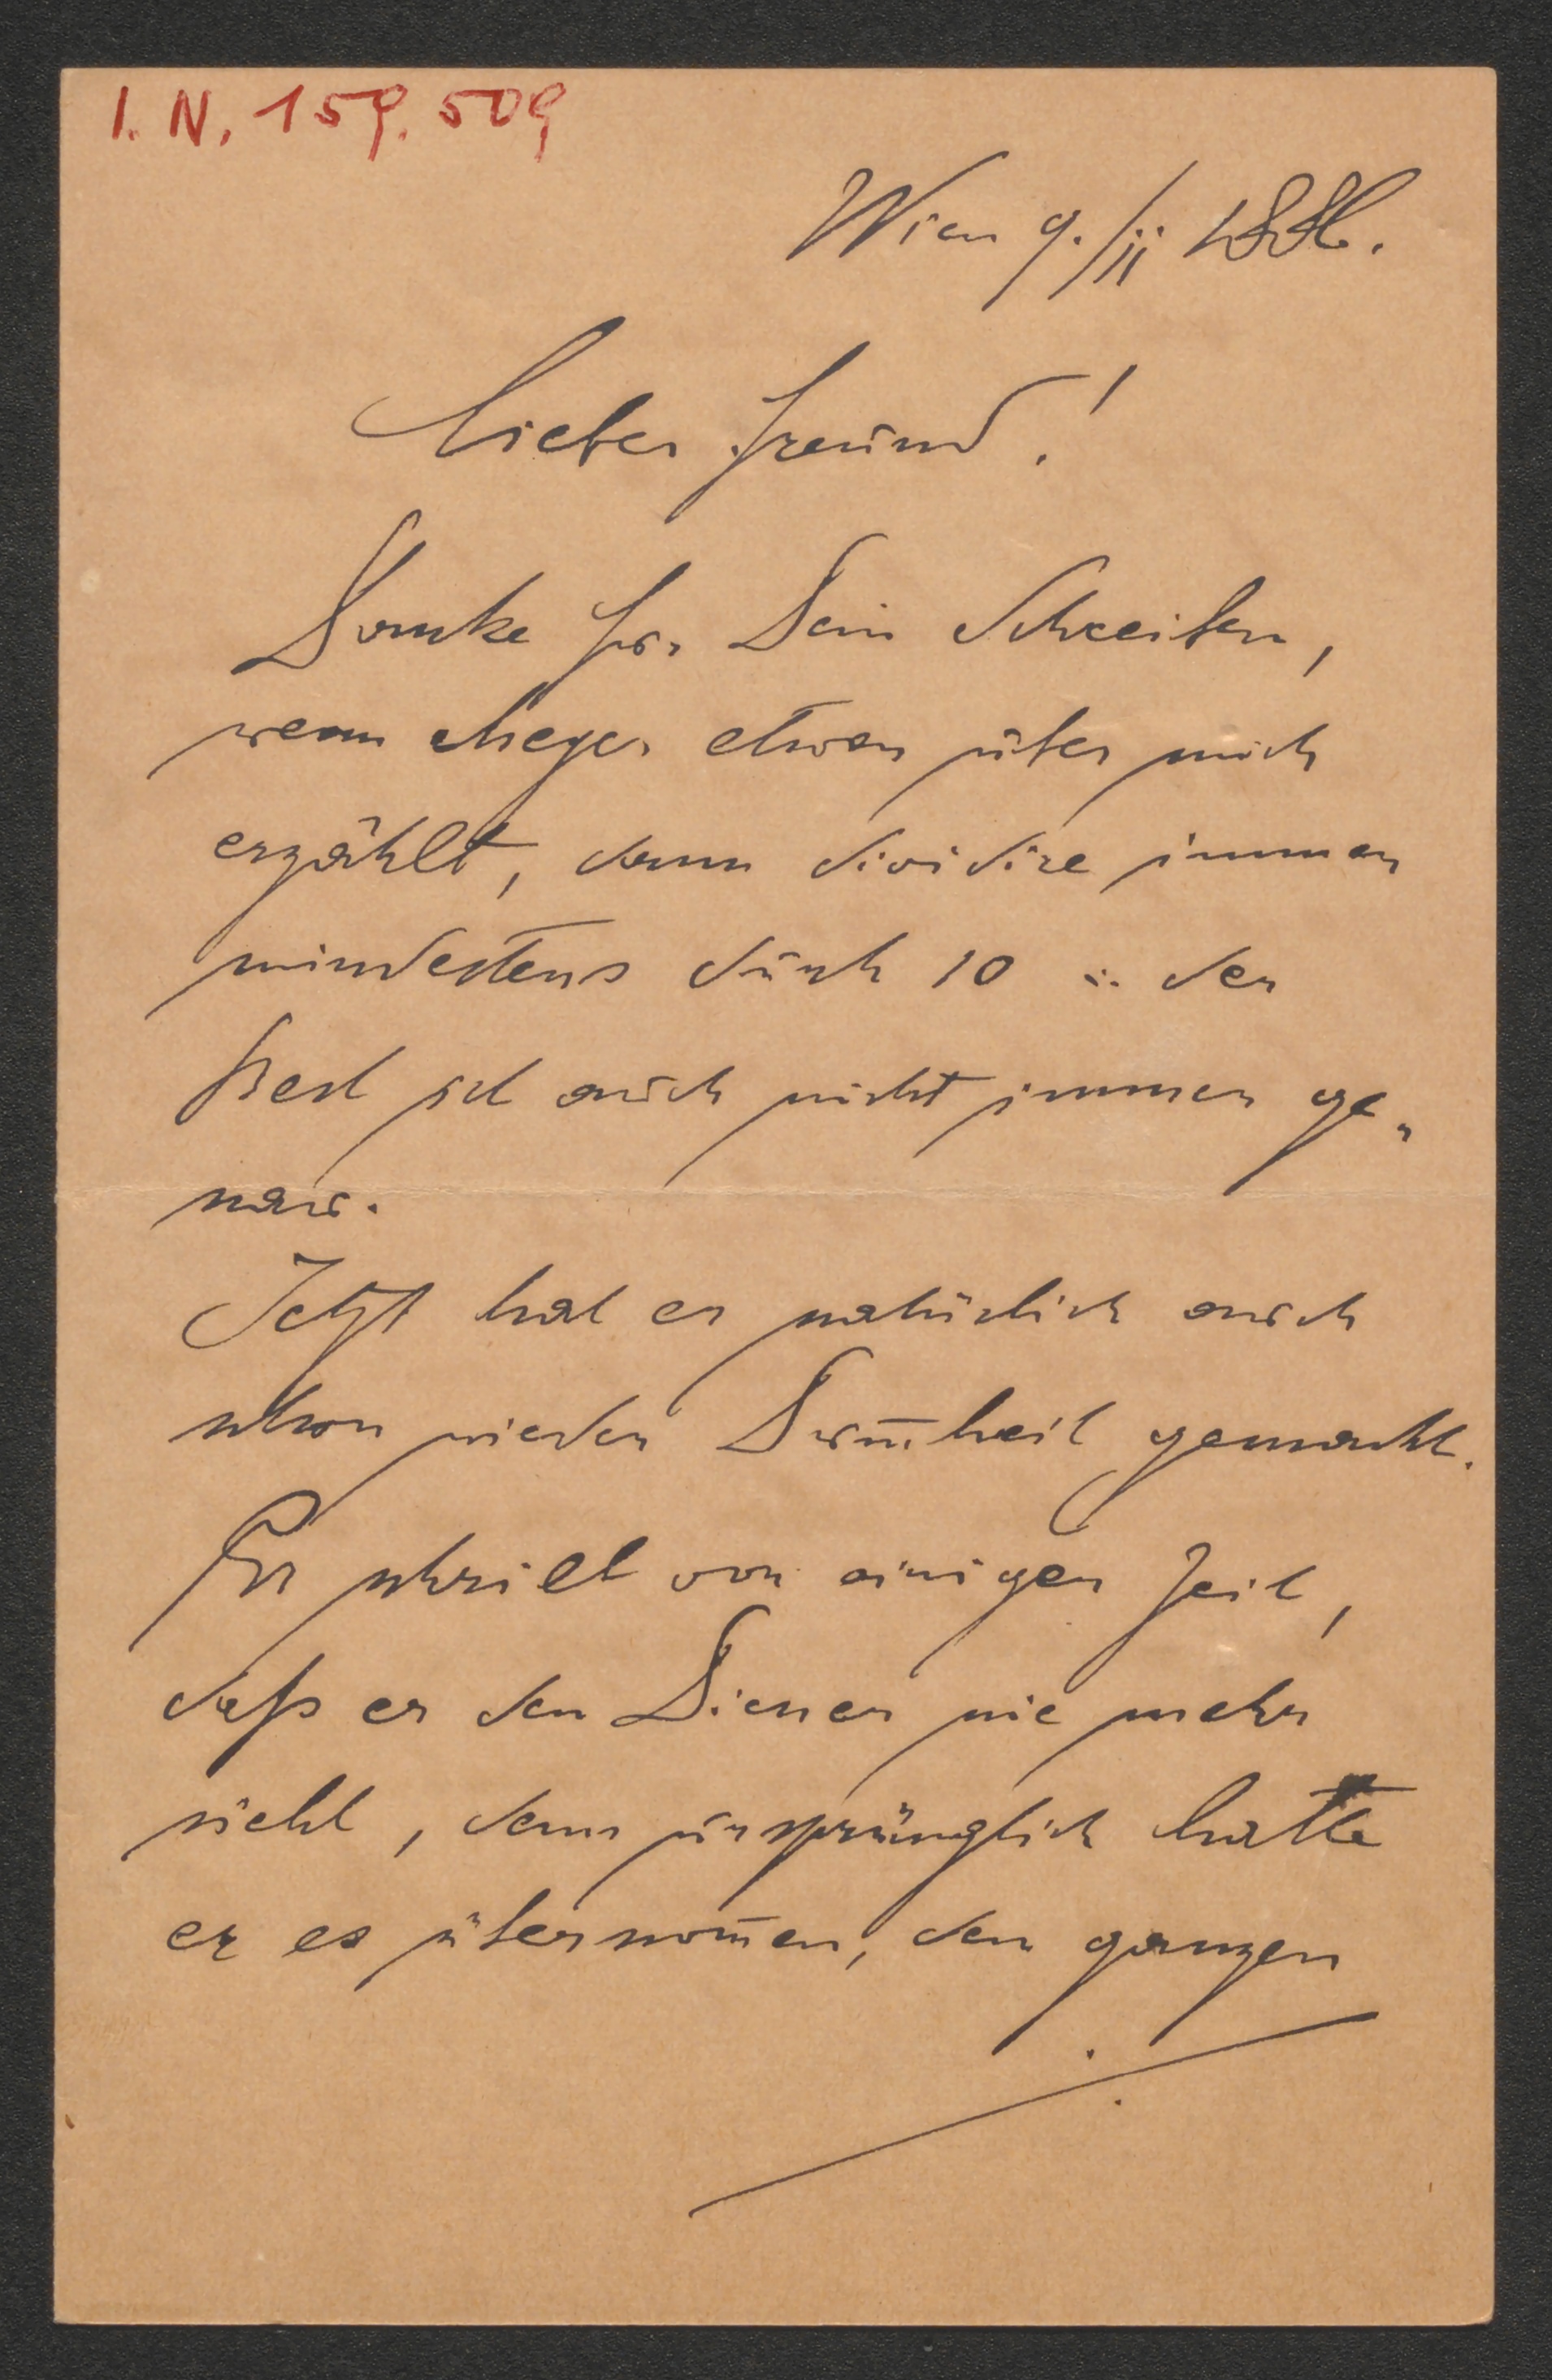 I. N. 159.509
Wien 9./ii 1886.
Lieber Freund!
Danke für Dein Schreiben,
wenn Meyer etwas über mich
erzählt, dann dividire immer
mindestens durch 10 u. der
Rest ist auch nicht immer ge„
nau.
Jetzt hat er natürlich auch
schon wieder Dum̅heit gemacht.
Er schrieb vor einiger Zeit,
daß er den Diener nie mehr
sieht, denn ursprünglich hatte
er es übernom̅en, den ganzen